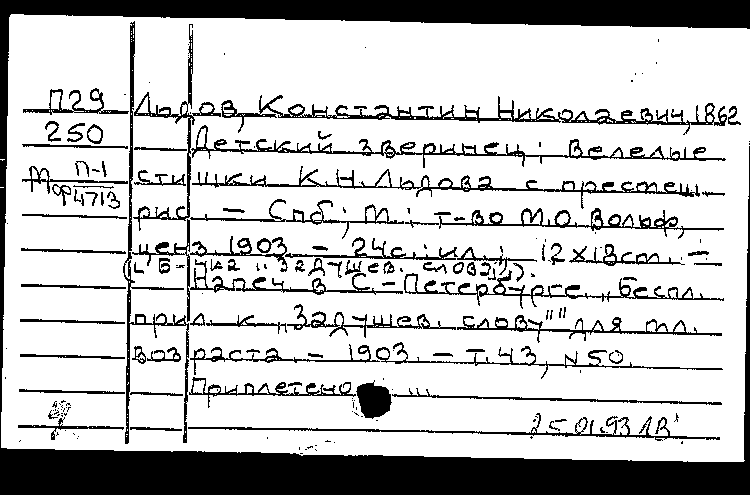 П29 Льдов, Константин Николаевич, 1862
250 Детский зверинец: Веселые
М П-1 стишки К.Н.Льдова с престеш.
оф4713 рис. - Спб; М.: т-во М.О. Вольф,
ценз. 1903 - 24с.: ил.; 12х18см. -
(Б-чка "Задушев. слова").
Напеч. в С.-Петербурге. "Беспл.
прил. к "Задушев. слову"" для мл.
возраста. - 1903. - Т.43, N50.
Приплетено
25.01.93 ЛВ